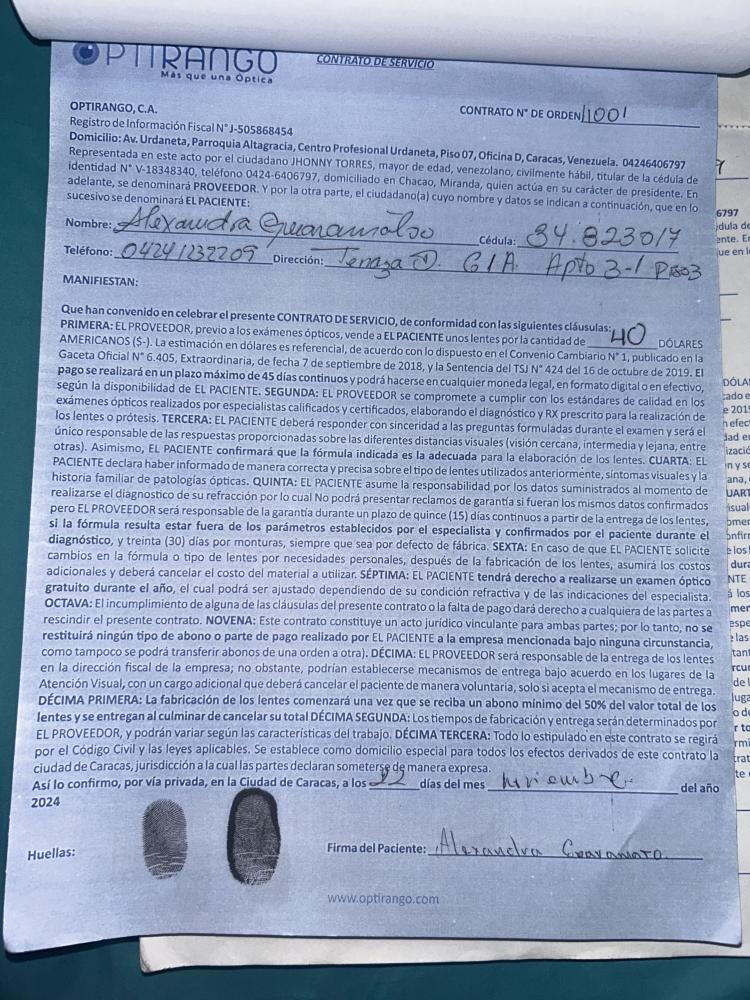 OPTIRANGO
Más que una Óptica
CONTRATO DE SERVICIO
OPTIRANGO, C.A.
CONTRATO N° DE ORDEN 11001
Registro de Información Fiscal N° J-505868454
Domicilio: Av. Urdaneta, Parroquia Altagracia, Centro Profesional Urdaneta, Piso 07, Oficina D, Caracas, Venezuela. 04246406797
Representada en este acto por el ciudadano JHONNY TORRES, mayor de edad, venezolano, civilmente hábil, titular de la cédula de
identidad N° V-18348340, teléfono 0424-6406797, domiciliado en Chacao, Miranda, quien actúa en su carácter de presidente. En
adelante, se denominará PROVEEDOR. Y por la otra parte, el ciudadano(a) cuyo nombre y datos se indican a continuación, que en lo
sucesivo se denominará EL PACIENTE:
Nombre: Alexandra Cédula: 34.823017
Teléfono: 04241232209 Dirección: Tenaza D. G1A. Apto 3-1 Piso3
MANIFIESTAN:
Que han convenido en celebrar el presente CONTRATO DE SERVICIO, de conformidad con las siguientes cláusulas:
PRIMERA: EL PROVEEDOR, previo a los exámenes ópticos, vende a EL PACIENTE unos lentes por la cantidad de 40 DÓLARES
AMERICANOS ($-). La estimación en dólares es referencial, de acuerdo con lo dispuesto en el Convenio Cambiario N° 1, publicado en la
Gaceta Oficial N° 6.405, Extraordinaria, de fecha 7 de septiembre de 2018, y la Sentencia del TSJ N° 424 del 16 de octubre de 2019. El
pago se realizará en un plazo máximo de 45 días continuos y podrá hacerse en cualquier moneda legal, en formato digital o en efectivo,
según la disponibilidad de EL PACIENTE. SEGUNDA: EL PROVEEDOR se compromete a cumplir con los estándares de calidad en los
exámenes ópticos realizados por especialistas calificados y certificados, elaborando el diagnóstico y RX prescrito para la realización de
los lentes o prótesis. TERCERA: EL PACIENTE deberá responder con sinceridad a las preguntas formuladas durante el examen y será el
único responsable de las respuestas proporcionadas sobre las diferentes distancias visuales (visión cercana, intermedia y lejana, entre
otras). Asimismo, EL PACIENTE confirmará que la fórmula indicada es la adecuada para la elaboración de los lentes. CUARTA: EL
PACIENTE declara haber informado de manera correcta y precisa sobre el tipo de lentes utilizados anteriormente, síntomas visuales y la
historia familiar de patologías ópticas. QUINTA: EL PACIENTE asume la responsabilidad por los datos suministrados al momento de
realizarse el diagnostico de su refracción por lo cual No podrá presentar reclamos de garantía si fueran los mismos datos confirmados
pero EL PROVEEDOR será responsable de la garantía durante un plazo de quince (15) días continuos a partir de la entrega de los lentes,
si la fórmula resulta estar fuera de los parámetros establecidos por el especialista y confirmados por el paciente durante el
diagnóstico, y treinta (30) días por monturas, siempre que sea por defecto de fábrica. SEXTA: En caso de que EL PACIENTE solicite
cambios en la fórmula o tipo de lentes por necesidades personales, después de la fabricación de los lentes, asumirá los costos
adicionales y deberá cancelar el costo del material a utilizar. SÉPTIMA: EL PACIENTE tendrá derecho a realizarse un examen óptico
gratuito durante el año, el cual podrá ser ajustado dependiendo de su condición refractiva y de las indicaciones del especialista.
OCTAVA: El incumplimiento de alguna de las cláusulas del presente contrato o la falta de pago dará derecho a cualquiera de las partes a
rescindir el presente contrato. NOVENA: Este contrato constituye un acto jurídico vinculante para ambas partes; por lo tanto, no se
restituirá ningún tipo de abono o parte de pago realizado por EL PACIENTE a la empresa mencionada bajo ninguna circunstancia,
como tampoco se podrá transferir abonos de una orden a otra). DÉCIMA: EL PROVEEDOR será responsable de la entrega de los lentes
en la dirección fiscal de la empresa; no obstante, podrían establecerse mecanismos de entrega bajo acuerdo en los lugares de la
Atención Visual, con un cargo adicional que deberá cancelar el paciente de manera voluntaria, solo si acepta el mecanismo de entrega.
DÉCIMA PRIMERA: La fabricación de los lentes comenzará una vez que se reciba un abono mínimo del 50% del valor total de los
lentes y se entregan al culminar de cancelar su total DÉCIMA SEGUNDA: Los tiempos de fabricación y entrega serán determinados por
EL PROVEEDOR, y podrán variar según las características del trabajo. DÉCIMA TERCERA: Todo lo estipulado en este contrato se regirá
por el Código Civil y las leyes aplicables. Se establece como domicilio especial para todos los efectos derivados de este contrato la
ciudad de Caracas, jurisdicción a la cual las partes declaran someterse de manera expresa.
Así lo confirmo, por vía privada, en la Ciudad de Caracas, a los 22 días del mes Noviembre del año
2024
Huellas:
Firma del Paciente: Alexandra
www.optirango.com